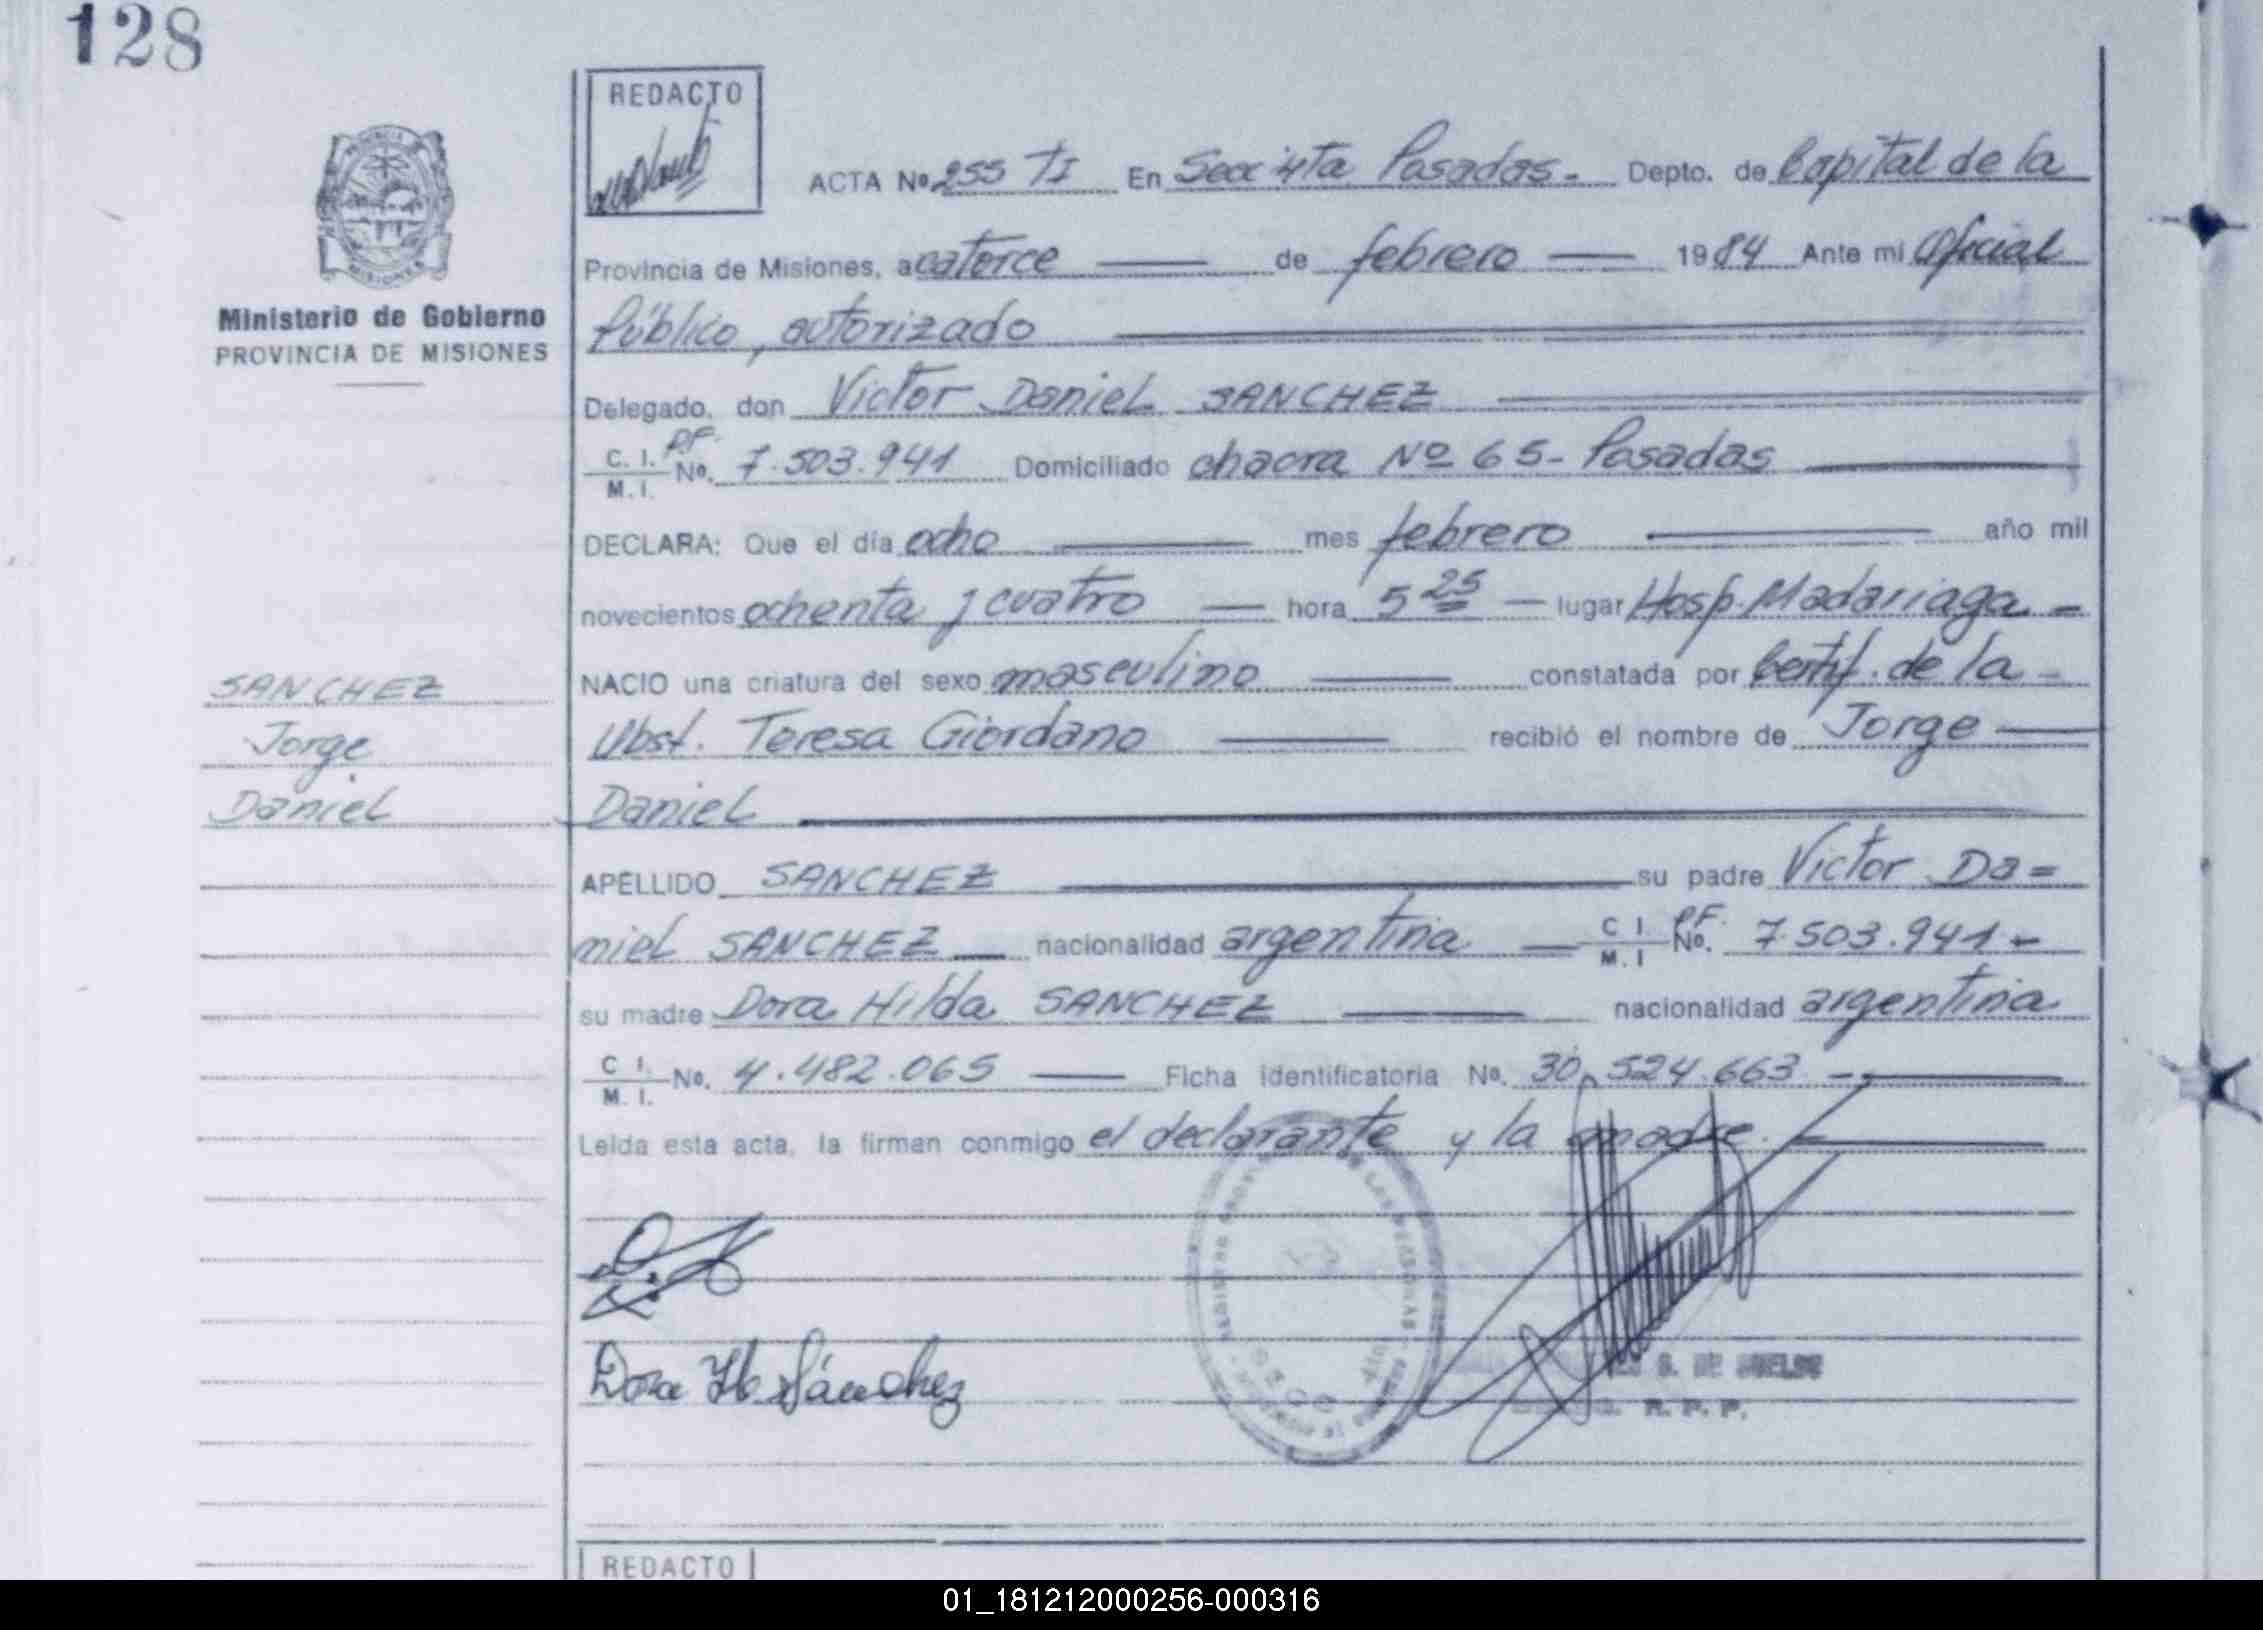 128
REDACTO
ACTA Nº 255 TI En Secc 4ta Posadas.- Depto. de Capital de la
Provincia de Misiones, a catorce de febrero 1984 Ante mi Oficial
Ministerio de Gobierno
PROVINCIA DE MISIONES
Público, autorizado
Delegado, don Victor Daniel SANCHEZ
C. I. M. I. PF. No. 7.503.941 Domiciliado chacra Nº 65- Posadas
DECLARA: Que el día ocho mes febrero año mil
novecientos ochenta y cuatro hora 5 25 lugar Hosp. Madariaga -
SANCHEZ
NACIO una criatura del sexo masculino constatada por Certif. de la -
Jorge
Obst. Teresa Giordano recibió el nombre de Jorge
Daniel
Daniel
APELLIDO SANCHEZ su padre Victor Da=
niel SANCHEZ nacionalidad argentina C I M. I PF. No. 7.503.941-
su madre Dora Hilda SANCHEZ nacionalidad argentina
C I. M. I. No. 4.482.065 Ficha Identificatoria No. 30.524.663 -
Leída esta acta, la firman conmigo el declarante y la madre.-
Dora H. Sánchez
R. P. P.
REDACTO
01_181212000256-000316